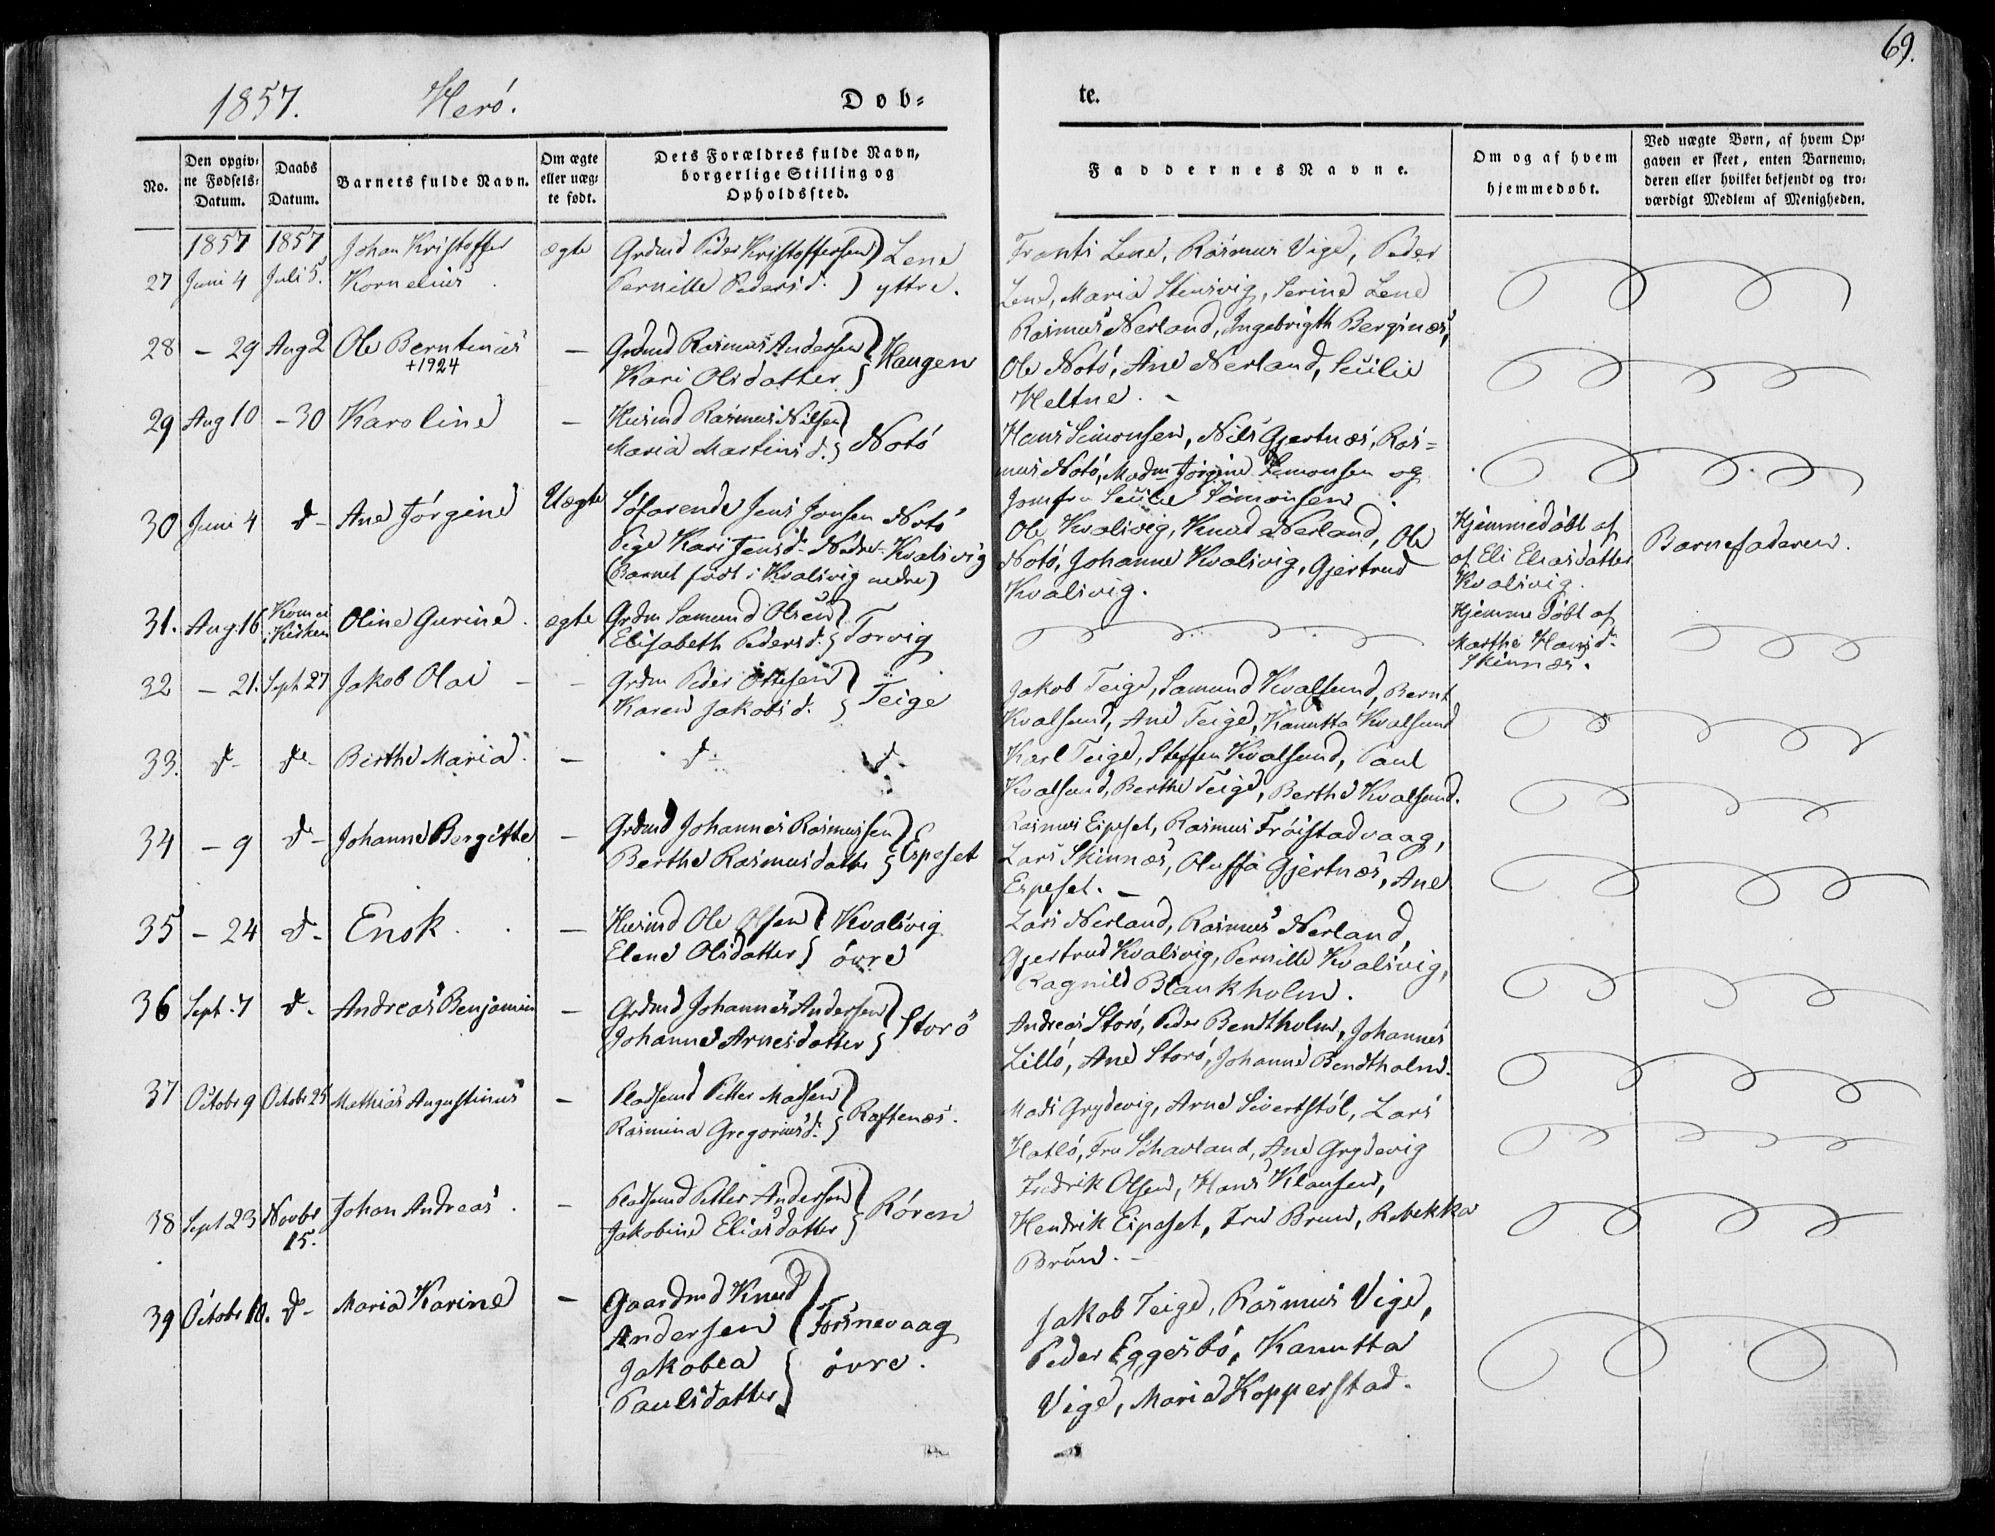 69.
1857. Herö.
Dob=
te.
No.
Den opgiv=
ne Fødsels=
Datum.
Daabs
Datum.
Barnets fulde Navn.
Om ægte
eller uæg=
te født.
Dets Forældres fulde Navn,
borgerlige Stilling og
Opholdssted.
Faddernes Navne.
Om og af hvem
hjemmedøbt.
Ved uægte Børn, af hvem Op=
gaven er skeet, enten Barnemo=
deren eller hvilket bekjendt og tro=
værdigt Medlem af Menigheden.
1857 1857 Johan Kristoffer ægte Grdmd Peder Kristoffersen Lene
27 Juni 4 Juli 5. Kornelius. Pernille Peders d. yttre.
Frants Lene, Rasmus Vige, Peder
Lene, Maria Stensvig, Serine Lene
28 - 29 Aug 2 Ole Berntinus — Grdmd Rasmus Andersen Haugen
+1924
Kari Olsdatter
Rasmus Nerland, Ingebrigth Berginæs,
Ole Notö, Ane Nerland, Secilie
Heltne. -
29 Aug 10 - 30 Karoline — Husmd Rasmus Nilsen
Maria Martins d. Notö
Hans Simonsen, Nils Gjertnæs, Ras=
mus Notö, Madm Jörgine Simonsen og
Jomfru Secilie Simonsen.
30 Juni 4 d- Ane Jörgine Uægte Söfarende Jens Jonsen Notö
Pige Kari Jens d- Nedre Kvalsvig
(Barnet födt i Kvalsvig nedre)
Ole Kvalsvig, Knud Nerland, Ole
Notö, Johanne Kvalsvig, Gjertrud
Kvalsvig.
Hjemmedöbt af
af Eli Eliasdatter
Kvalsvig.
Barnefaderen.
31. Aug. 16 Kom ei
i Kirken Oline Gurine. ægte Grdm Samund Olsen
Elisabeth Peders d. Torvig
Hjemmedöbt af
Marthe Hans d.
Skinnæs.
32 - 21. Sept 27 Jakob Olai - - Grdm Peder Ottesen
Karen Jakobs d. Teige
Jakob Teige, Samund Kvalsund, Bernt
Kvalsund, Ane Teige, Kanutta Kvalsund
33. d- d- Birthe Maria. — d- d-
Karl Teige, Steffen Kvalsund, Paul
Kvalsund, Berthe Teige, Berthe Kvalsund.
34 - 9 d- Johanne Bergitte — Grdmd Johannes Rasmussen
Berthe Rasmusdatter Espeset
Rasmus Eipset, Rasmus Fröistadvaag,
Lars Skinnæs, Oluffa Gjertnæs, Ane
Espeset. -
35 - 24 d- Enok. — Husmd Ole Olsen Kvalsvig
Elene Olsdatter övre
Lars Nerland, Rasmus Nerland,
Gjertrud Kvalsvig, Pernille Kvalsvig,
Ragnild Blankholm.
36 Sept. 7 d. Andreas Benjamin — Grdmd Johannes Andersen
Johanne Arnesdatter Storö
Andreas Storö, Peder Bendtholm, Johannes
Lillö, Ane Storö, Johanne Bendtholm.
37 Octobr 9 Octobr 25 Mathias Augustinus — Pladsmd Petter Madsen
Rasmina Gregorius d. Raftenæs.
Mads Grydevig, Arne Sivertstöl, Lars
Hatlö, Fru Schavland, Ane Grydevig
38 Sept 23 Novbr
15. Johan Andreas. — Pladsmd Petter Andersen
Jakobine Eliasdatter Rören
Fredrik Olsen, Hans Klausen,
Hendrik Eipeset, Fru Brun, Rebekka
Brun. -
39 Octobr 10. d- Maria Karine — Gaardmd Knud
Andersen Fosnevaag
Jakobea övre.
Paulsdatter
Jakob Teige, Rasmus Vige,
Peder Eggesbö, Kanutta
Vige, Maria Kopperstad.